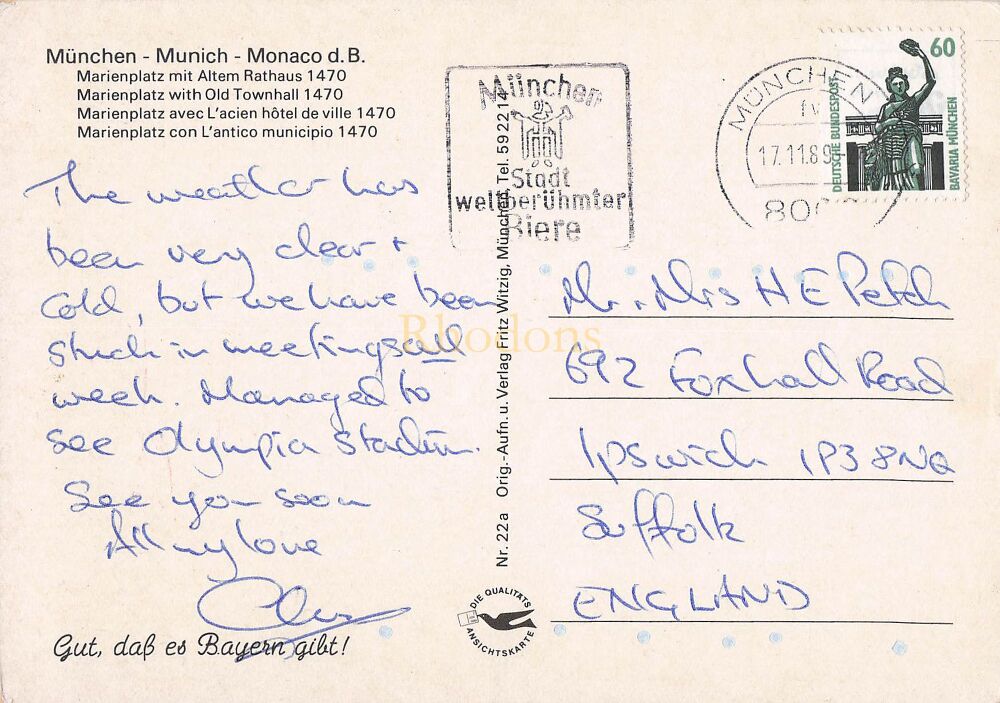 München - Munich - Monaco d. B.
Marienplatz mit Altem Rathaus 1470
Marienplatz with Old Townhall 1470
Marienplatz avec L'acien hôtel de ville 1470
Marienplatz con L'antico municipio 1470
The weather has
been very clear +
cold, but we have been
stuck in meetings all
week. Managed to
see Olympia Stadium.
See you soon
All my love
Gut, daß es Bayern gibt!
Nr. 22a Orig.-Aufn. u. Verlag Fritz Witzig, München, Tel. 592214
DIE QUALITÄTS
ANSICHTSKARTE
München
Stadt
weltberühmter
Biere
MÜNCHEN
17.11.89
800
60
DEUTSCHE BUNDESPOST
BAVARIA MÜNCHEN
Mr. + Mrs H E Petch
692 Foxhall Road
Ipswich IP3 8NQ
Suffolk
ENGLAND
Rhodons